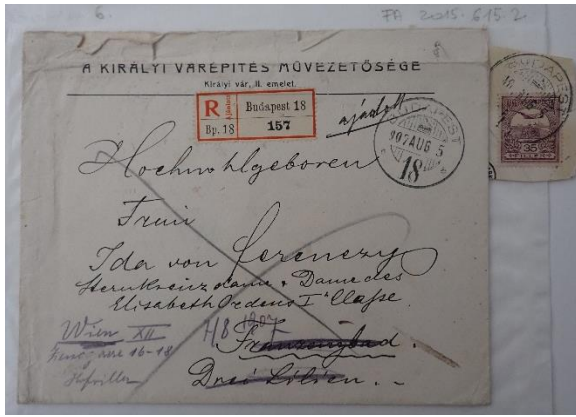 6.
FA 2015.615.2
A KIRÁLYI VÁRÉPÍTÉS MŰVEZETŐSÉGE
Királyi vár, II. emelet.
R Ajánlott Budapest 18
Bp. 18 157
ajánlott
BUDAPEST
907 AUG 5
18
BUDAPEST
35
Hochwohlgeboren
Ida von Ferenczy
Sternkreuzdame & Dame des
Elisabeth Ordens I Classe.
Wien XII
16-18
1907
Franzensbad.
Drei Lilien.